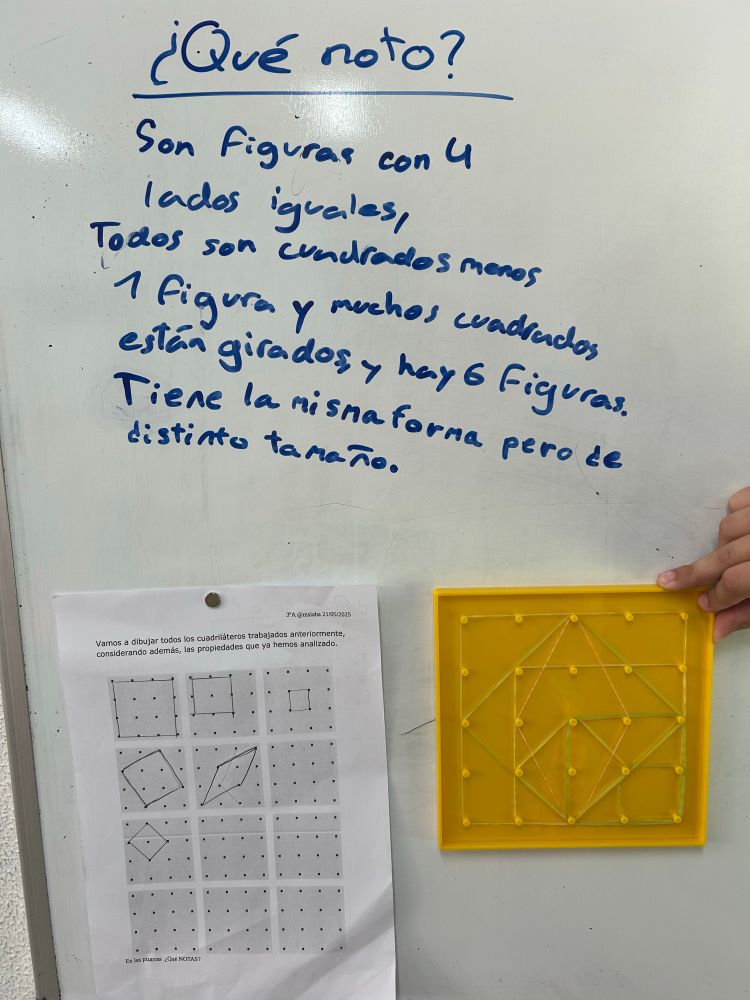 ¿Qué noto?
Son figuras con 4
lados iguales,
Todos son cuadrados menos
1 figura y muchos cuadrados
están girados, y hay 6 figuras.
Tiene la misma forma pero de
distinto tamaño.
3°A @msiaba 21/05/2025
Vamos a dibujar todos los cuadriláteros trabajados anteriormente,
considerando además, las propiedades que ya hemos analizado.
En las pizarras ¿Qué NOTAS?